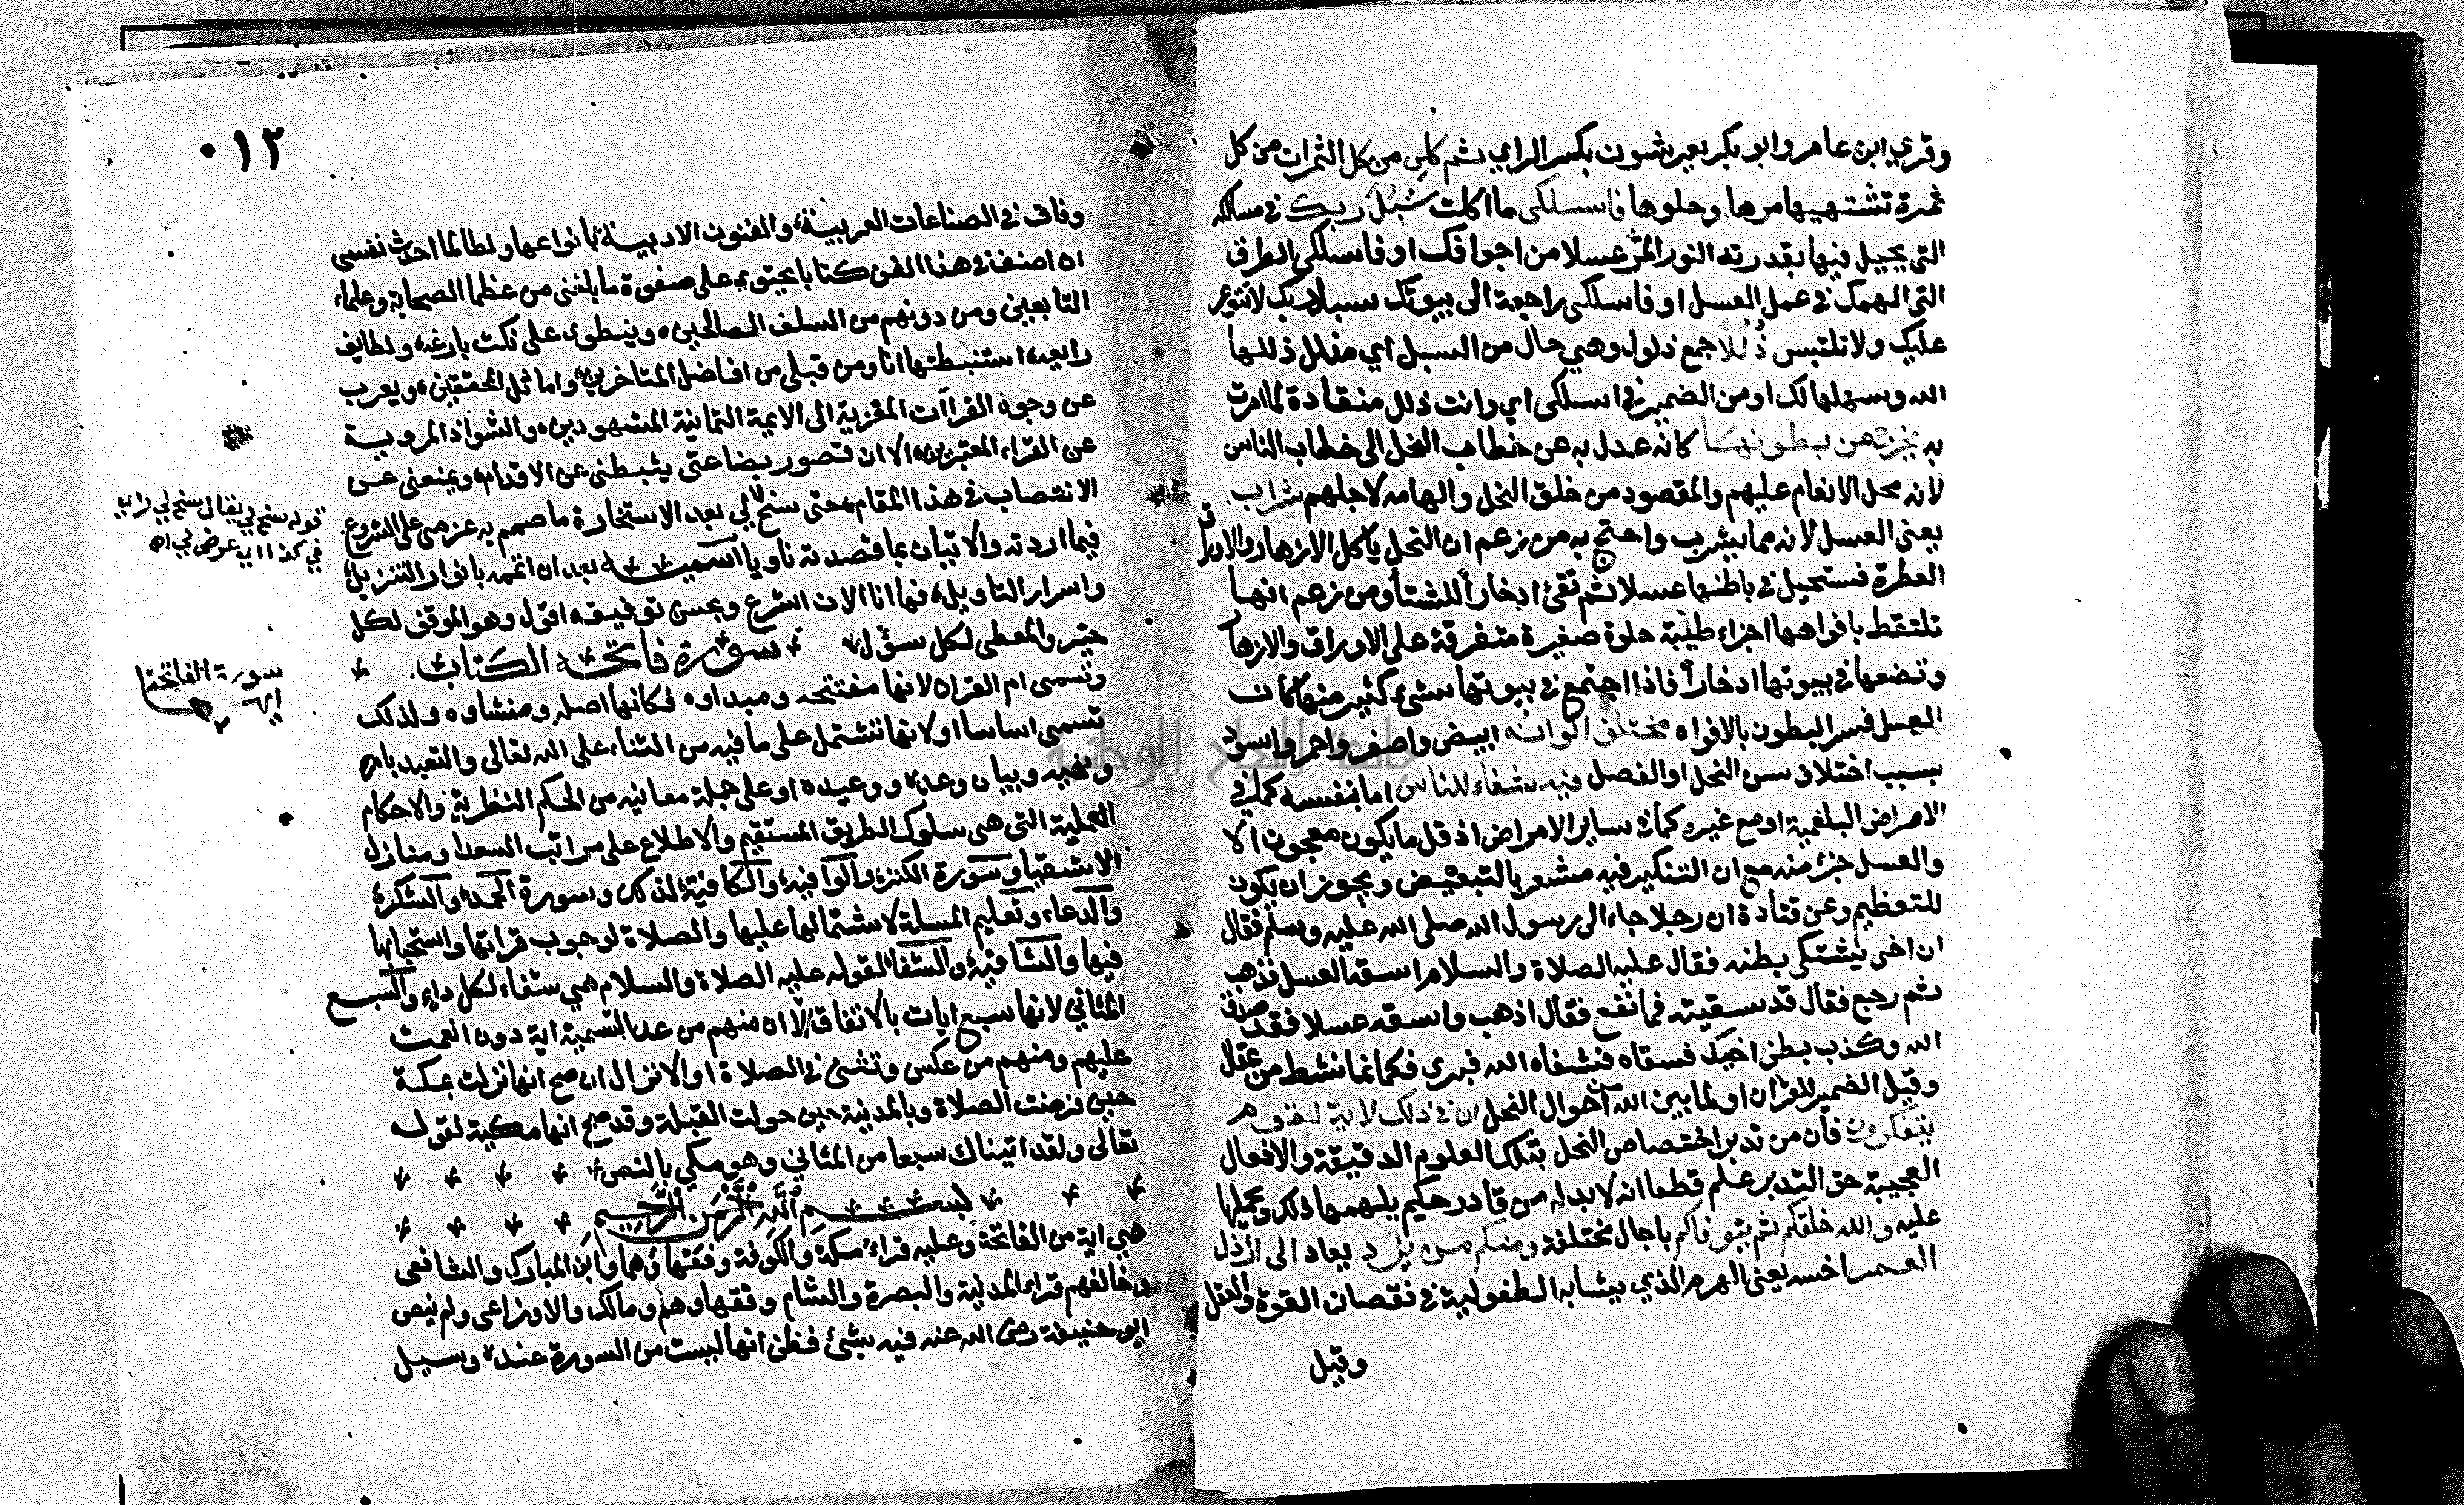 وقرئ ابن عامر وابو بكر يعرشون بكسر الراي ثم كلي من كل الثمرات من كل
ثمرة تشتهيها مرها وحلوها فاسلكي ما اكلت سُبُلَ ربك في مسالكه
التي يحيل فيها بقدرته النور المرّ عسلا من اجوافك او فاسلكي الطرق
التي الهمك في عمل العسل او فاسلكي راجعة الى بيوتك سبل ربك لا تتوعر
عليك ولا تلتبس ذُلُلاً جمع ذلول وهي حال من السبل اي مذلل ذللها
الله وسهلها لك او من الضمير في اسلكي اي وانت ذلل منقادة لما امرت
به يخرج من بطونها كانه عدل به عن خطاب النحل الى خطاب الناس
لانه محل الانعام عليهم والمقصود من خلق النحل والهامه لاجلهم شراب
يعني العسل لانه مما يشرب واحتج به من زعم ان النحل يأكل الازهار والاوراق
العطرة فتستحيل في باطنها عسلا ثم تقئ ادخاراً للشتاء ومن زعم انها
تلتقط بافواهها اجزاء طيّبة حلوة صغيرة متفرقة على الاوراق والازهار
وتضعها في بيوتها ادخاراً فاذا اجتمع في بيوتها شيء كثير منها كانت
العسل فسر البطون بالافواه مختلف الوانه ابيض واصفر واحمر واسود
بسبب اختلاف سن النحل او الفصل فيه شفاء للناس اما بنفسه كما في
الامراض البلغمية او مع غيره كما في ساير الامراض اذ قل ما يكون معجون الا
والعسل جزء منه مع ان التنكير فيه مشعر بالتبعيض ويجوز ان يكون
للتعظيم وعن قتادة ان رجلا جاء الى رسول الله صلى الله عليه وسلم فقال
ان اخي يشتكى بطنه فقال عليه الصلاة والسلام اسقه العسل فذهب
ثم رجع فقال قد سقيته فما نفع فقال اذهب واسقه عسلا فقد صدق
الله وكذب بطن اخيك فسقاه فشفاه الله فبرئ فكانما نشط من عقال
وقيل الضمير للقرآن او لما بين الله من احوال النحل ان في ذلك لاية لقوم
يتفكرون فان من تدبر اختصاص النحل بتلك العلوم الدقيقة والافعال
العجيبة حق التدبر علم قطعا انه لابد له من قادر حكيم يلهمها ذلك ويحملها
عليه والله خلقكم ثم يتوفاكم باجال مختلفة ومنكم من يرد يعاد الى ارذل
العمر اخسه يعني الهرم الذي يشابه الطفولية في نقصان القوة والعقل
وقيل
٠١٢
وفاق في الصناعات العربية، والفنون الادبية بانواعها ولطالما احدث نفسى
ان اصنف في هذا الفن كتابا يحتوي على صفوة ما بلغني من عظما الصحابة وعلماء
التابعين ومن دونهم من السلف الصالحين، وينطوى على نكت بارعة، ولطايف
رايعه، استنبطتها انا ومن قبلى من افاضل المتاخرين، واماثل المحققين، ويعرب
عن وجوه القراآت المعزية الى الايمة الثمانية المشهورين، والشواذ المروية
عن القراء المعتبرين، الا ان قصور بضاعتى يثبطني عن الاقدام، ويمنعنى عن
الانتصاب في هذا المقام، حتى سنح لي بعد الاستخارة ما صمم به عزمى على الشروع
فيما اردته والاتيان بما قصدته ناويا ان اسميه بعد ان اتمه بانوار التنزيل،
واسرار التاويل، فها انا الان اشرع وبحسن توفيقه اقول وهو الموفق لكل
خير والمعطى لكل سؤل سورة فاتحة الكتاب
وتسمى ام القران لانها مفتتحه ومبداوه فكانها اصله ومنشاوه ولذلك
تسمى اساسا او لانها تشتمل على ما فيه من الثناء على الله تعالى والتعبد بامره
ونهيه وبيان وعده ووعيده او على جملة معانيه من الحكم النظرية والاحكام
العملية التي هي سلوك الطريق المستقيم والاطلاع على مراتب السعدا ومنازل
الاشقيا وسورة الكنز، والوافيه، والكافية، لذلك وسورة الحمد، والشكر،
والدعاء، وتعليم المسلة لاشتمالها عليها والصلاة لوجوب قراتها واستحبابها
فيها والشافية، والشفا لقوله عليه الصلاة والسلام هي شفاء لكل داء، والسبع
المثاني لانها سبع ايات بالاتفاق الا ان منهم من عد التسمية اية دون انعمت
عليهم ومنهم من عكس وتثنى في الصلاة او الانزال ان صح انها نزلت بمكة
حين فرضت الصلاة وبالمدينة حين حولت القبلة وقد صح انها مكية لقوله
تعالى ولقد اتيناك سبعا من المثاني وهو مكي بالنص
بسم الله الرحمن الرحيم
هي اية من الفاتحة وعليه قراء مكة والكوفة وفقهاؤهما وابن المبارك والشافعي
وخالفهم قراء المدينة والبصرة والشام وفقهاوهم ومالك والاوزاعى ولم ينص
ابو حنيفة رضى الله عنه فيه بشئ فظن انها ليست من السورة عنده وسيل
قوله سنح لي يقال سنح لي راي
في كذا اي عرض لي اه
سورة الفاتحة
جامعة النجاح الوطنية